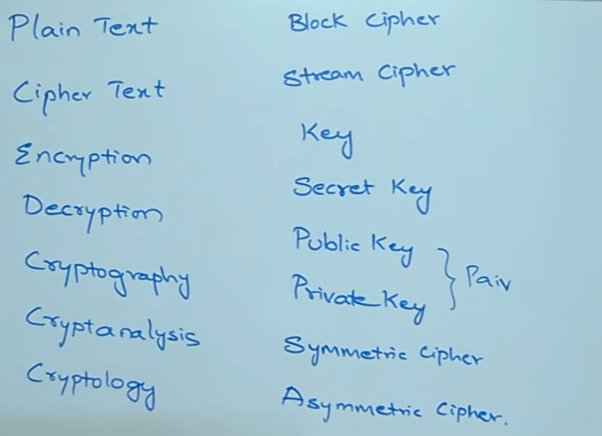 Plain Text
Cipher Text
Encryption
Decryption
Cryptography
Cryptanalysis
Cryptology
Block Cipher
Stream Cipher
Key
Secret Key
Public Key
Private Key
Pair
Symmetric Cipher
Asymmetric Cipher.